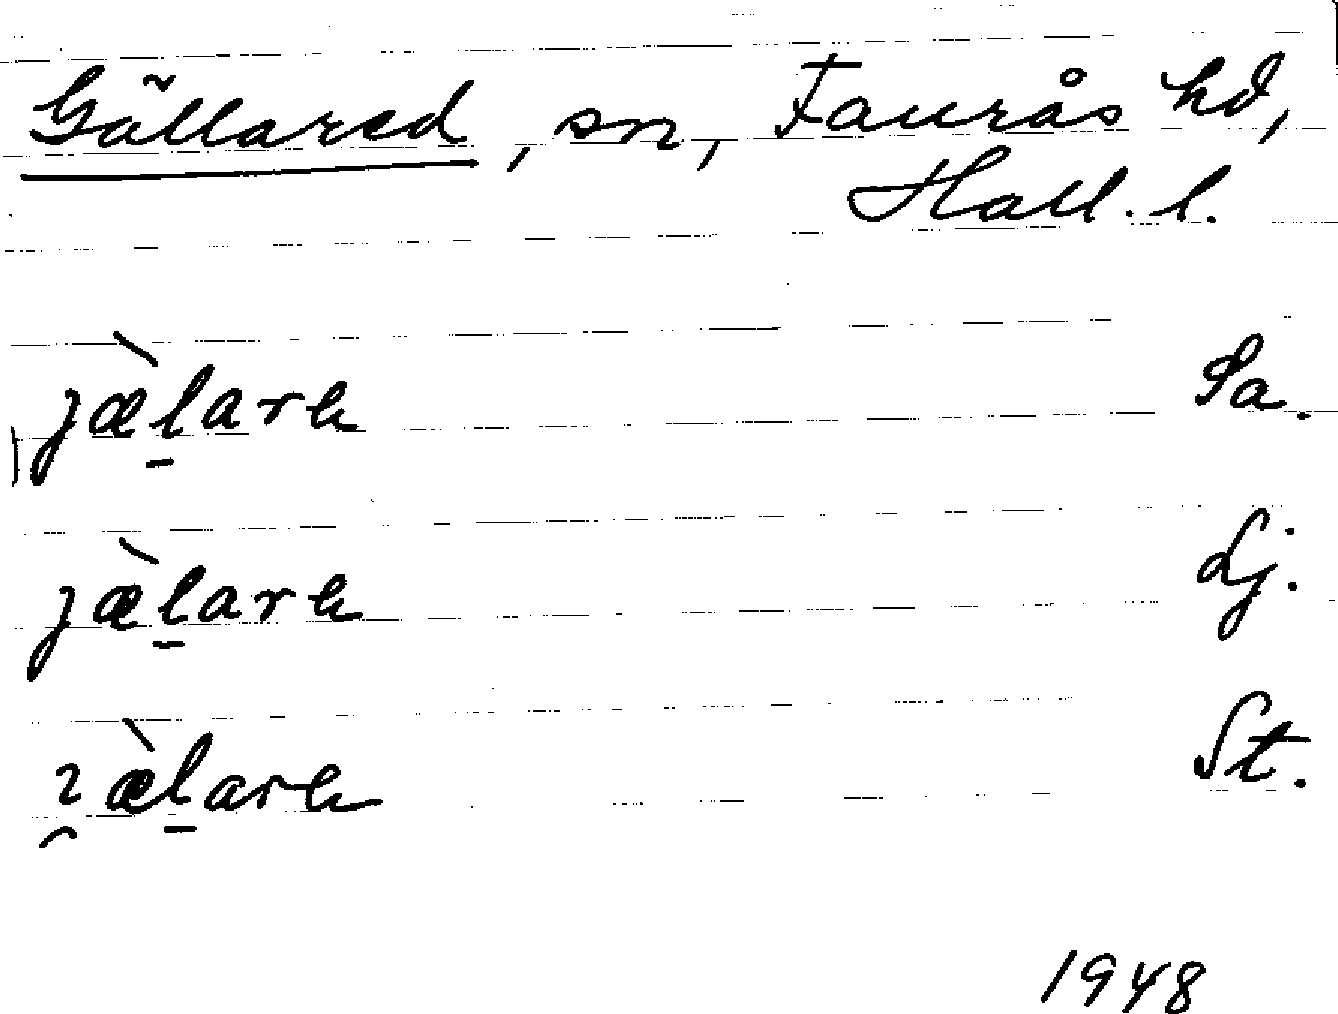 Gällared, sn, Faurås hd,
Hall. l.
jæ̀l̠arɐ Sa.
jæ̀l̠arɐ Lj.
ı̯æ̀l̠arɐ St.
1948